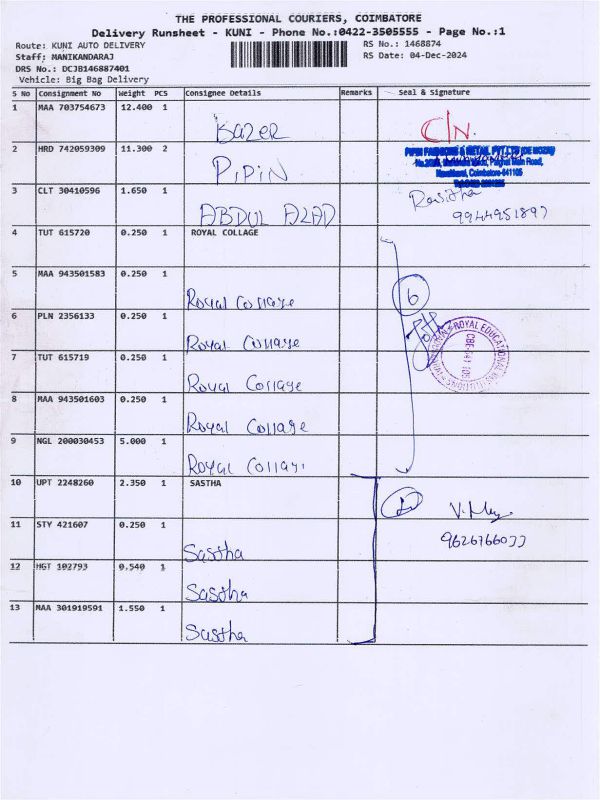 THE PROFESSIONAL COURIERS, COIMBATORE
Delivery Runsheet - KUNI - Phone No.:0422-3505555 - Page No.:1
Route: KUNI AUTO DELIVERY RS No.: 1468874
Staff: MANIKANDARAJ RS Date: 04-Dec-2024
DRS No.: DCJB146887401
Vehicle: Big Bag Delivery
S No Consignment No Weight PCS Consignee Details Remarks Seal & Signature
1 MAA 703754673 12.400 1
Bazer C/N.
2 HRD 742059309 11.300 2
PIPIN
3 CLT 30410596 1.650 1
ABDUL AZAD Rasitha
9944951897
4 TUT 615720 0.250 1 ROYAL COLLAGE
5 MAA 943501583 0.250 1
Royal Collage 6
6 PLN 2356133 0.250 1
Royal Collage
7 TUT 615719 0.250 1
Royal Collage
8 MAA 943501603 0.250 1
Royal Collage
9 NGL 200030453 5.000 1
Royal Collage
10 UPT 2248260 2.350 1 SASTHA
11 STY 421607 0.250 1
Sastha
12 HGT 102793 0.540 1
Sastha
13 MAA 301919591 1.550 1
Sastha